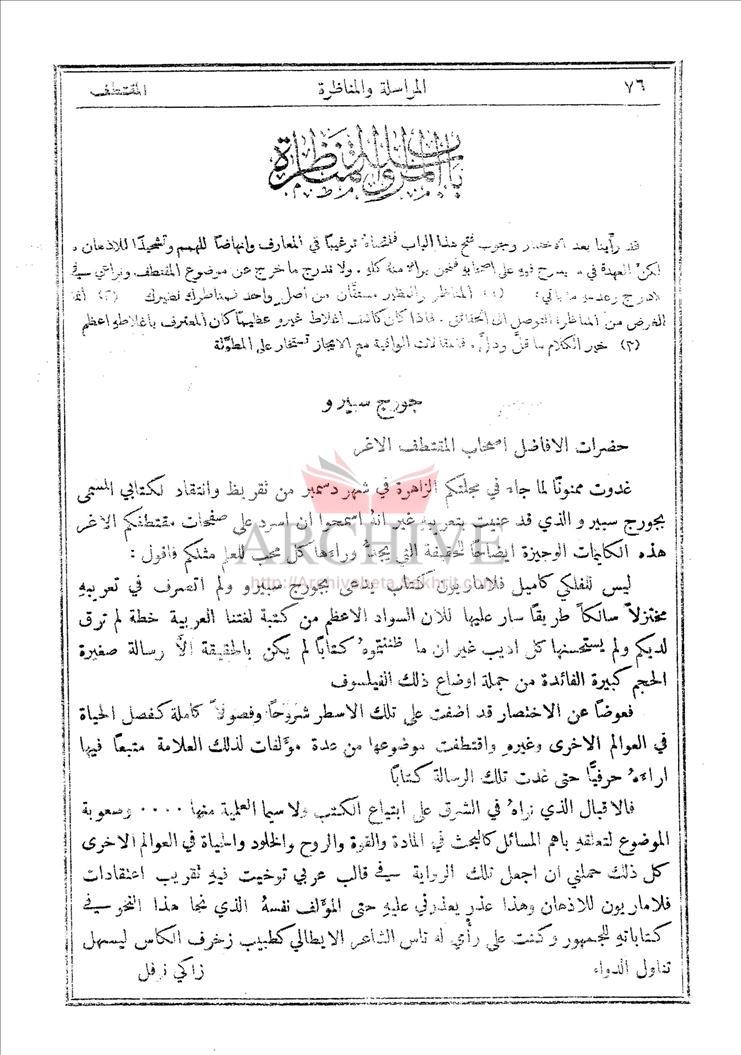 ٧٦
المراسلة والمناظرة
المقتطف
باب المراسلة والمناظرة
قد رأينا بعد الاختبار وجوب فتح هذا الباب ففتحناهُ ترغيبًا في المعارف وانهاضًا للهمم وتشحيذًا للاذهان
لكن العهدة في ما يدرج فيهِ على اصحابهِ فنحن براءٌ منهُ كلهِ . ولا ندرج ما خرج عن موضوع المقتطف ونراعي في
الادراج وعدمهِ ما يأتي : (١) المناظر والنظير مشتقَّان من اصل واحد فمناظرك نظيرك (٢) انما
الغرض من المناظرة التوصل الى الحقائق . فاذا كان كاشف اغلاط غيرهِ عظيمًا كان المعترف باغلاطهِ اعظم
(٣) خير الكلام ما قلَّ ودلَّ . فالمقالات الوافية مع الايجاز تستخار على المطوَّلة
جورج سبيرو
حضرات الافاضل اصحاب المقتطف الاغر
غدوت ممنونًا لما جاء في مجلتكم الزاهرة في شهر دسمبر من تقريظ وانتقاد لكتابي المسمى
بجورج سبيرو والذي قد عنيت بتعريبهِ غير انهُ اسمحوا ان اسرد على صفحات مقتطفكم الاغر
هذه الكليمات الوجيزة ايضاحًا لحقيقة التي يجدُّ وراءها كل محب للعلم مثلكم فاقول :
ليس للفلكي كاميل فلاماريون كتاب يدعى بجورج سبيرو ولم اتصرف في تعريبهِ
مختزلاً سالكًا طريقًا سار عليها للآن السواد الاعظم من كتبة لغتنا العربية خطة لم ترق
لديكم ولم يستحسنها كل اديب غير ان ما ظننتموهُ كتابًا لم يكن بالحقيقة الاَّ رسالة صغيرة
الحجم كبيرة الفائدة من جملة اوضاع ذلك الفيلسوف
فعوضًا عن الاختصار قد اضفت على تلك الاسطر شروحًا وفصولاً كاملة كفصل الحياة
في العوالم الاخرى وغيرهِ واقتطفت موضوعها من عدة مؤلفات لذلك العلامة متبعًا فيها
اراءهُ حرفيًّا حتى غدت تلك الرسالة كتابًا
فالاقبال الذي نراهُ في الشرق على ابتياع الكتب ولا سيما العلمية منها .... وصعوبة
الموضوع لتعلقهِ باهم المسائل كالبحث في المادة والقوة والروح والخلود والحياة في العوالم الاخرى
كل ذلك حملني ان اجعل تلك الرواية في قالب عربي توخيت فيهِ تقريب اعتقادات
فلاماريون للاذهان وهذا عذر يعذرني عليهِ حتى المؤلف نفسهُ الذي نجا هذا النحو في
كتاباتهِ للجمهور وكنت على رأي له تاس الشاعر الايطالي كطبيب زخرف الكاس ليسهل
تناول الدواء
زاكي نوفل
ARCHIVE
http://Archivebeta.Sakhrit.com